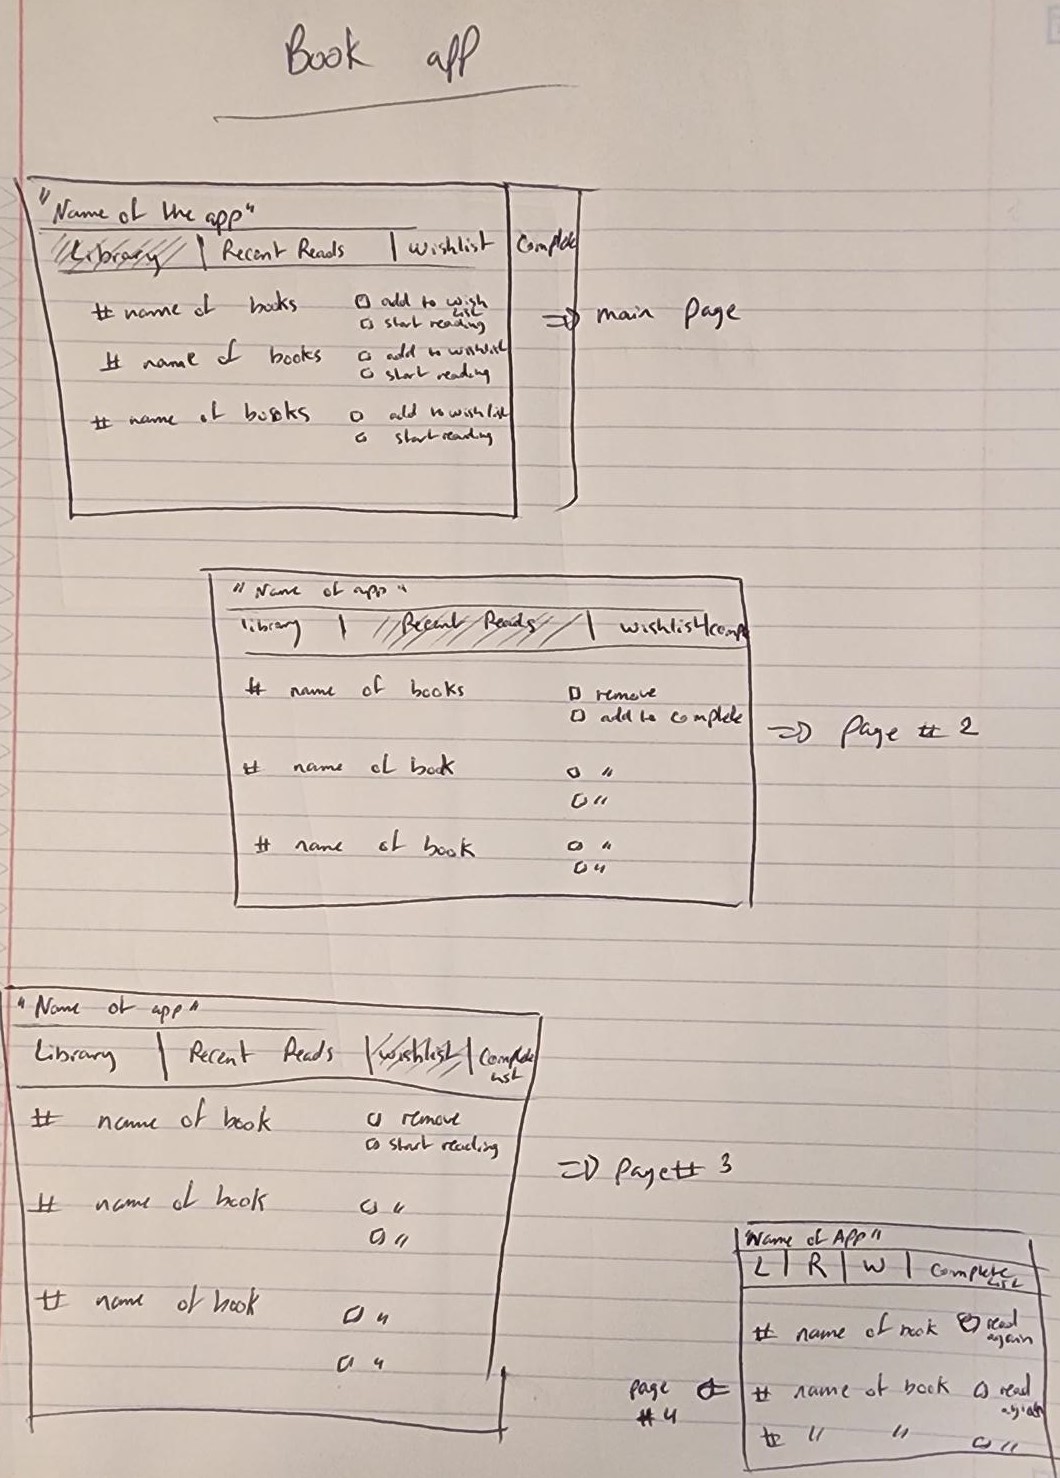 Book app
"Name of the app"
Library | Recent Reads | wishlist | Complete
# name of books □ add to wish list
□ start reading
⇒ main page
# name of books □ add to wishlist
□ start reading
# name of books □ add to wishlist
□ start reading
"Name of app"
library | Recent Reads | wishlist | comp
# name of books □ remove
□ add to complete
⇒ page # 2
# name of book □ "
□ "
# name of book □ "
□ "
"Name of app"
Library | Recent Reads | wishlist | Complete list
# name of book □ remove
□ start reading
⇒ page # 3
# name of book □ "
□ "
# name of book □ "
□ "
"Name of App"
L | R | W | Complete list
# name of book □ read again
page #4
# name of book □ read again
# " " □ "